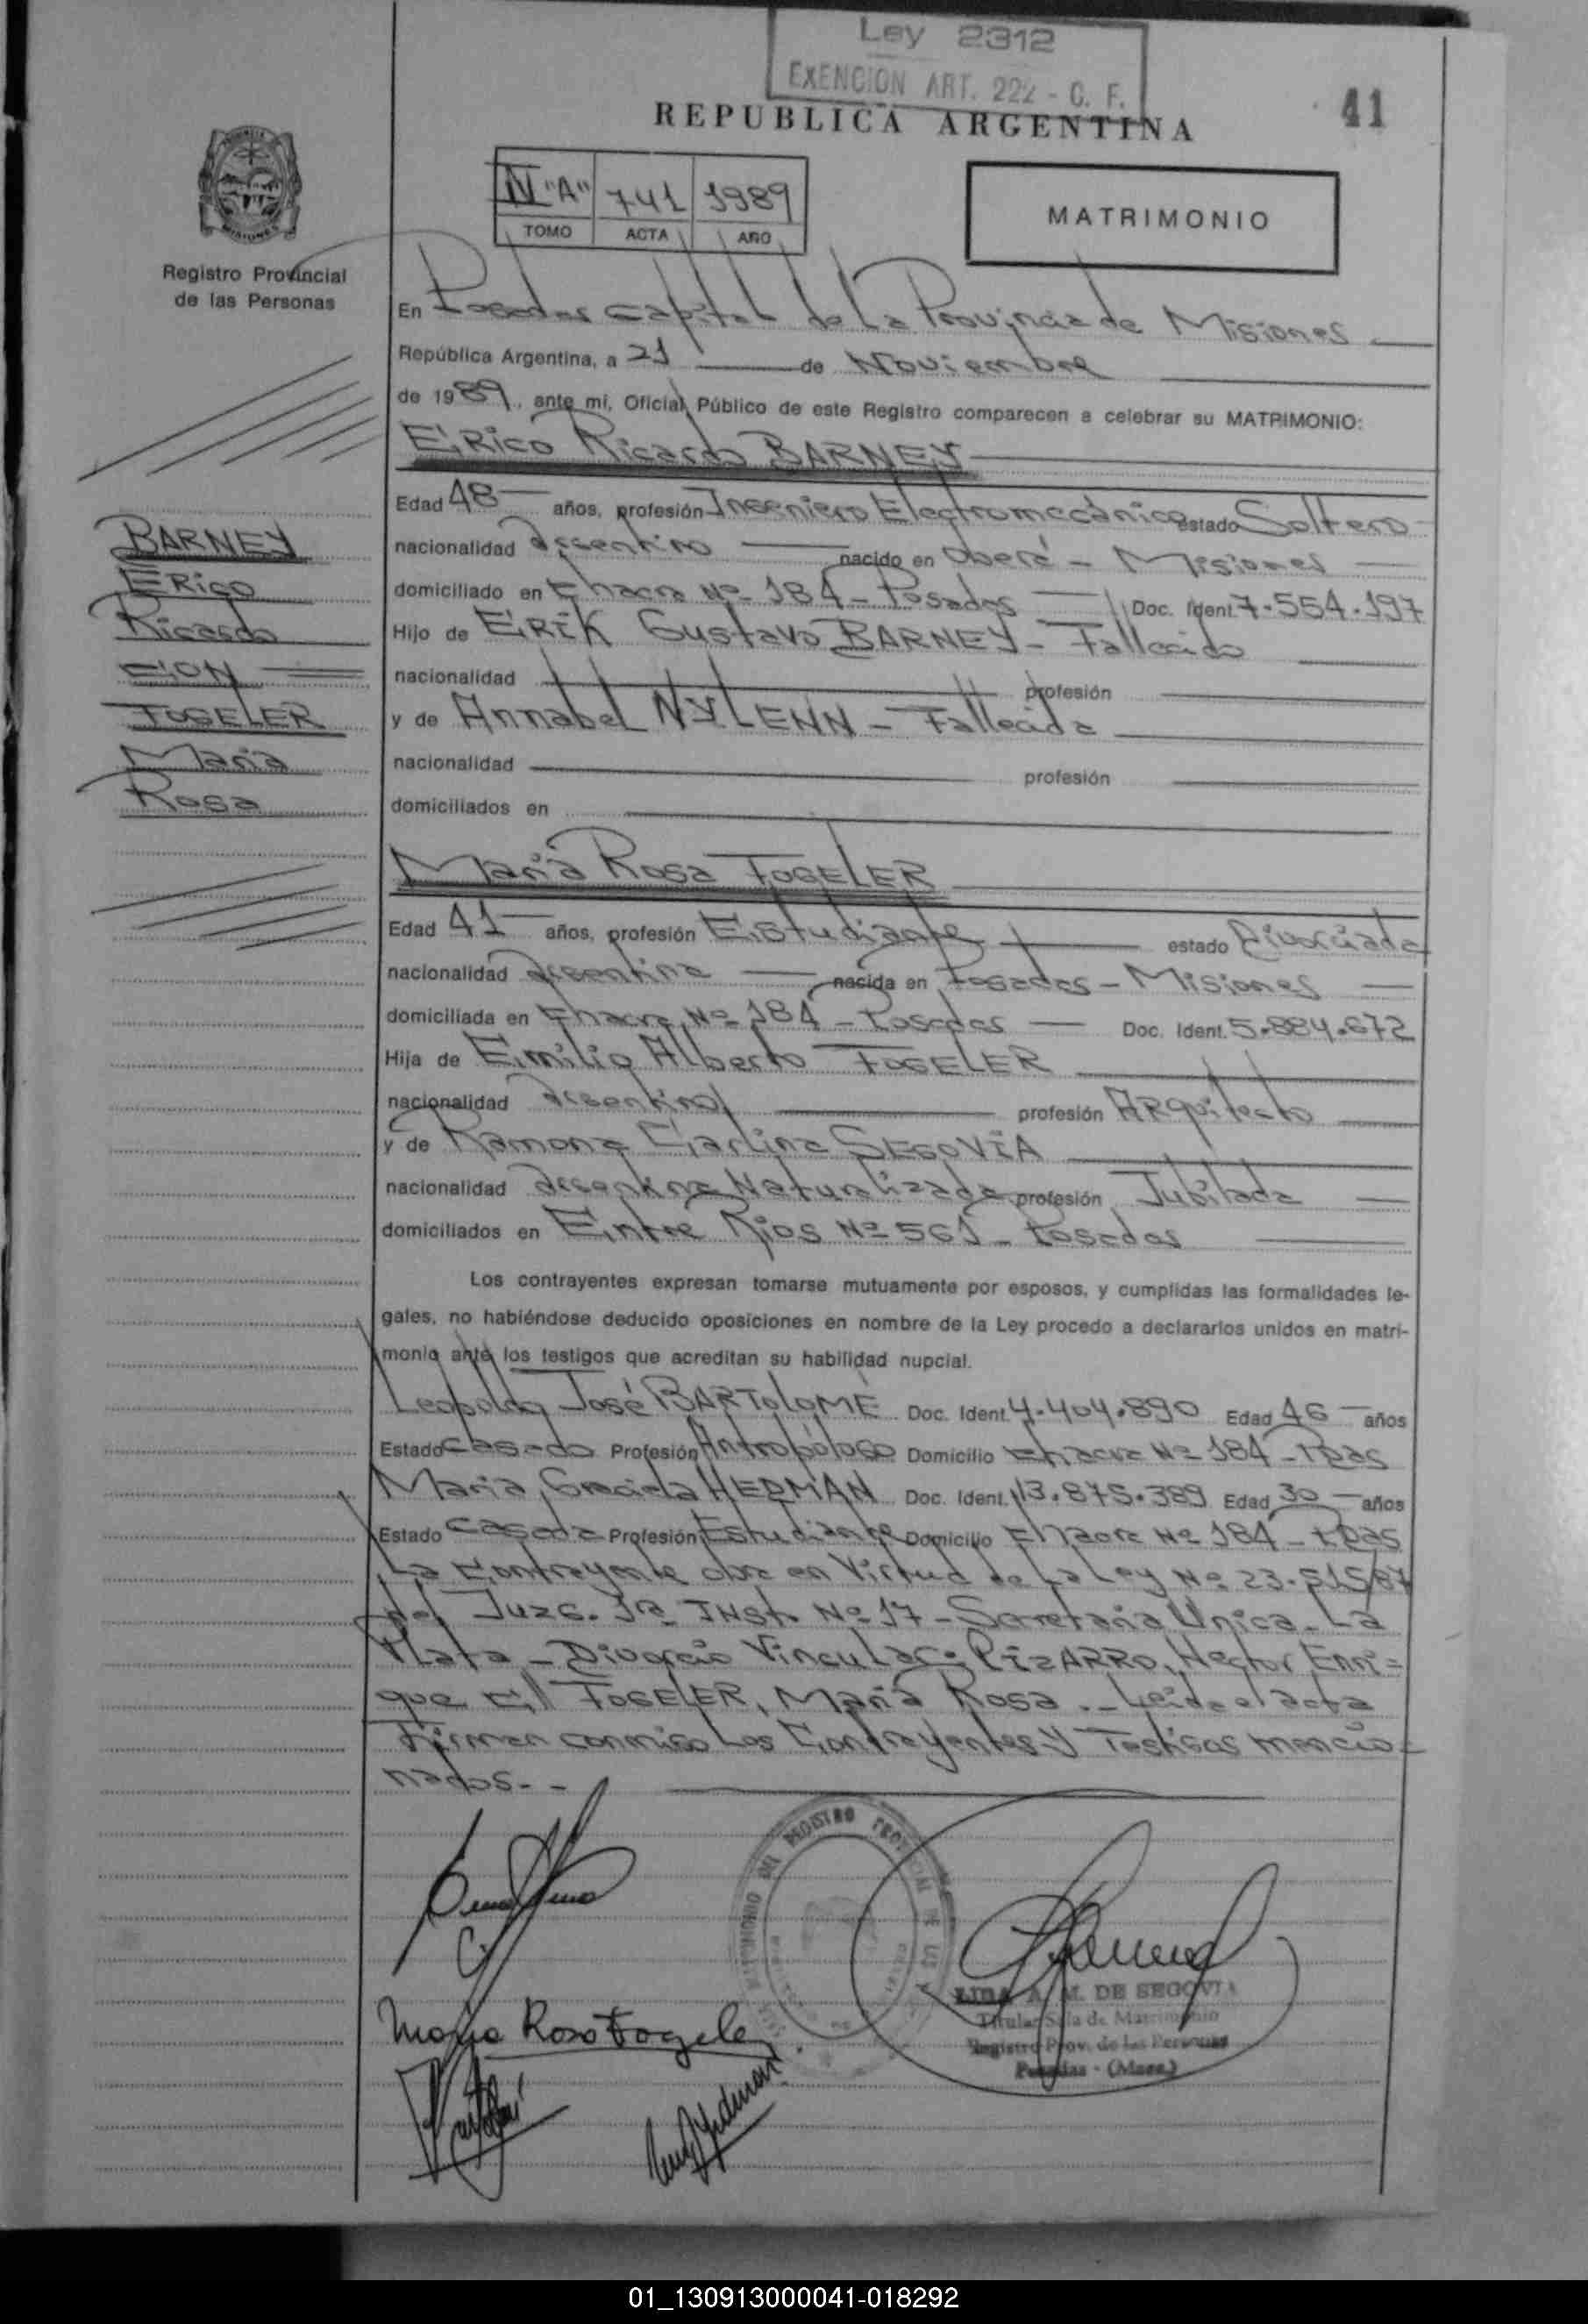 Ley 2312
EXENCION ART. 222 - C. F.
REPUBLICA ARGENTINA
41
IV "A" 741 1989
TOMO ACTA AÑO
MATRIMONIO
Registro Provincial
de las Personas
En Posadas Capital de la Provincia de Misiones
República Argentina, a 21 de Noviembre
de 1989, ante mí, Oficial Público de este Registro comparecen a celebrar su MATRIMONIO:
Erico Ricardo BARNEY
Edad 48 años, profesión Ingeniero Electromecánico estado Soltero
nacionalidad argentino nacido en Oberá - Misiones
domiciliado en Chacra Nº 184 - Posadas Doc. Ident. 7.554.197
Hijo de Erik Gustavo BARNEY - Fallecido
nacionalidad profesión
y de Annabel NYLENN - Fallecida
nacionalidad profesión
domiciliados en
María Rosa FOGELER
Edad 41 años, profesión Estudiante estado Divorciada
nacionalidad argentina nacida en Posadas - Misiones
domiciliada en Chacra Nº 184 - Posadas Doc. Ident. 5.884.672
Hija de Emilio Alberto FOGELER
nacionalidad argentino profesión Arquitecto
y de Ramona Carlina SEGOVIA
nacionalidad argentina Naturalizada profesión Jubilada
domiciliados en Entre Rios Nº 561 - Posadas
Los contrayentes expresan tomarse mutuamente por esposos, y cumplidas las formalidades le-
gales, no habiéndose deducido oposiciones en nombre de la Ley procedo a declararlos unidos en matri-
monio ante los testigos que acreditan su habilidad nupcial.
Leopoldo José BARTOLOMÉ Doc. Ident. 4.404.890 Edad 46 años
Estado Casado Profesión Antropólogo Domicilio Chacra Nº 184 - Pdas
María Graciela HEDMAN Doc. Ident. 13.875.389 Edad 30 años
Estado Casada Profesión Estudiante Domicilio Chacra Nº 184 - Pdas
La Contrayente obra en Virtud de La Ley Nº 23.515/87
del Juzg. 1ª Inst. Nº 17 - Secretaría Unica - La
Plata - Divorcio Vincular: PIZARRO, Hector Enri=
que C// FOGELER, María Rosa.- Leída el acta
Firman conmigo Los Contrayentes y Testigos mencio=
nados.-
BARNEY
Erico
Ricardo
CON
FOGELER
María
Rosa
María Rosa Fogeler
A. M. DE SEGOVIA
Titular Sala de Matrimonio
Registro Prov. de las Personas
Posadas - (Mnes.)
01_130913000041-018292